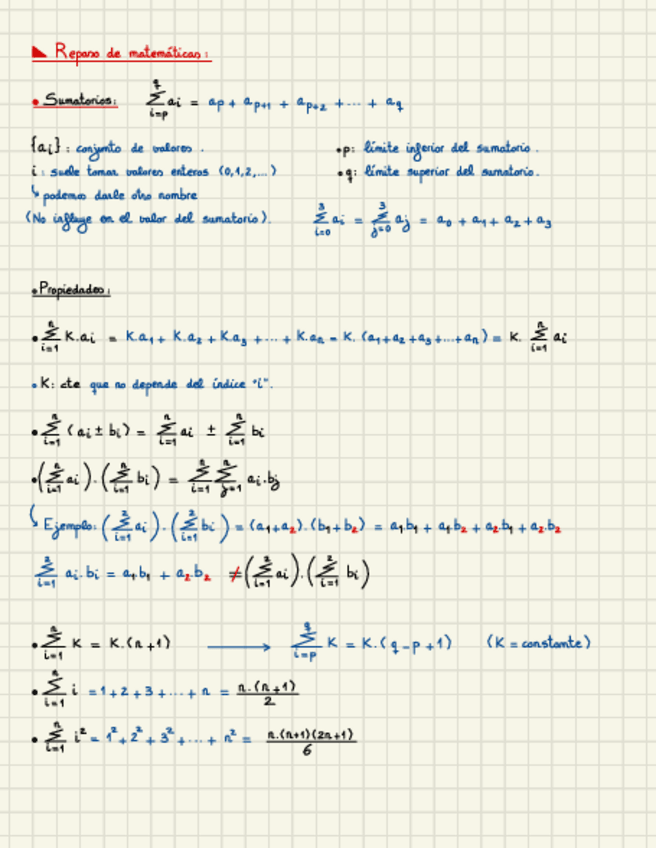 Repaso de matemáticas:
• Sumatorios: \sum_{i=p}^{q} a_i = a_p + a_{p+1} + a_{p+2} + ... + a_q
{a_i} : conjunto de valores .
• p: límite inferior del sumatorio .
i : suele tomar valores enteros (0,1,2,...)
• q: límite superior del sumatorio.
↳ podemos darle otro nombre
(No influye en el valor del sumatorio).
\sum_{i=0}^{3} a_i = \sum_{j=0}^{3} a_j = a_0 + a_1 + a_2 + a_3
• Propiedades:
• \sum_{i=1}^{n} K.a_i = K.a_1 + K.a_2 + K.a_3 + ... + K.a_n = K. (a_1+a_2+a_3+...+a_n) = K. \sum_{i=1}^{n} a_i
• K: cte que no depende del índice "i".
• \sum_{i=1}^{n} (a_i ± b_i) = \sum_{i=1}^{n} a_i ± \sum_{i=1}^{n} b_i
• (\sum_{i=1}^{n} a_i) . (\sum_{i=1}^{n} b_i) = \sum_{i=1}^{n} \sum_{j=1}^{n} a_i.b_j
↳ Ejemplo: (\sum_{i=1}^{2} a_i) . (\sum_{i=1}^{2} b_i) = (a_1+a_2).(b_1+b_2) = a_1b_1 + a_1b_2 + a_2b_1 + a_2b_2
\sum_{i=1}^{2} a_i.b_i = a_1b_1 + a_2b_2 ≠ (\sum_{i=1}^{2} a_i).(\sum_{i=1}^{2} b_i)
• \sum_{i=1}^{n} K = K.(n+1) ⟶ \sum_{i=p}^{q} K = K.(q-p+1) (K = constante)
• \sum_{i=1}^{n} i = 1+2+3+...+n = \frac{n.(n+1)}{2}
• \sum_{i=1}^{n} i^2 = 1^2+2^2+3^2+...+n^2 = \frac{n.(n+1)(2n+1)}{6}